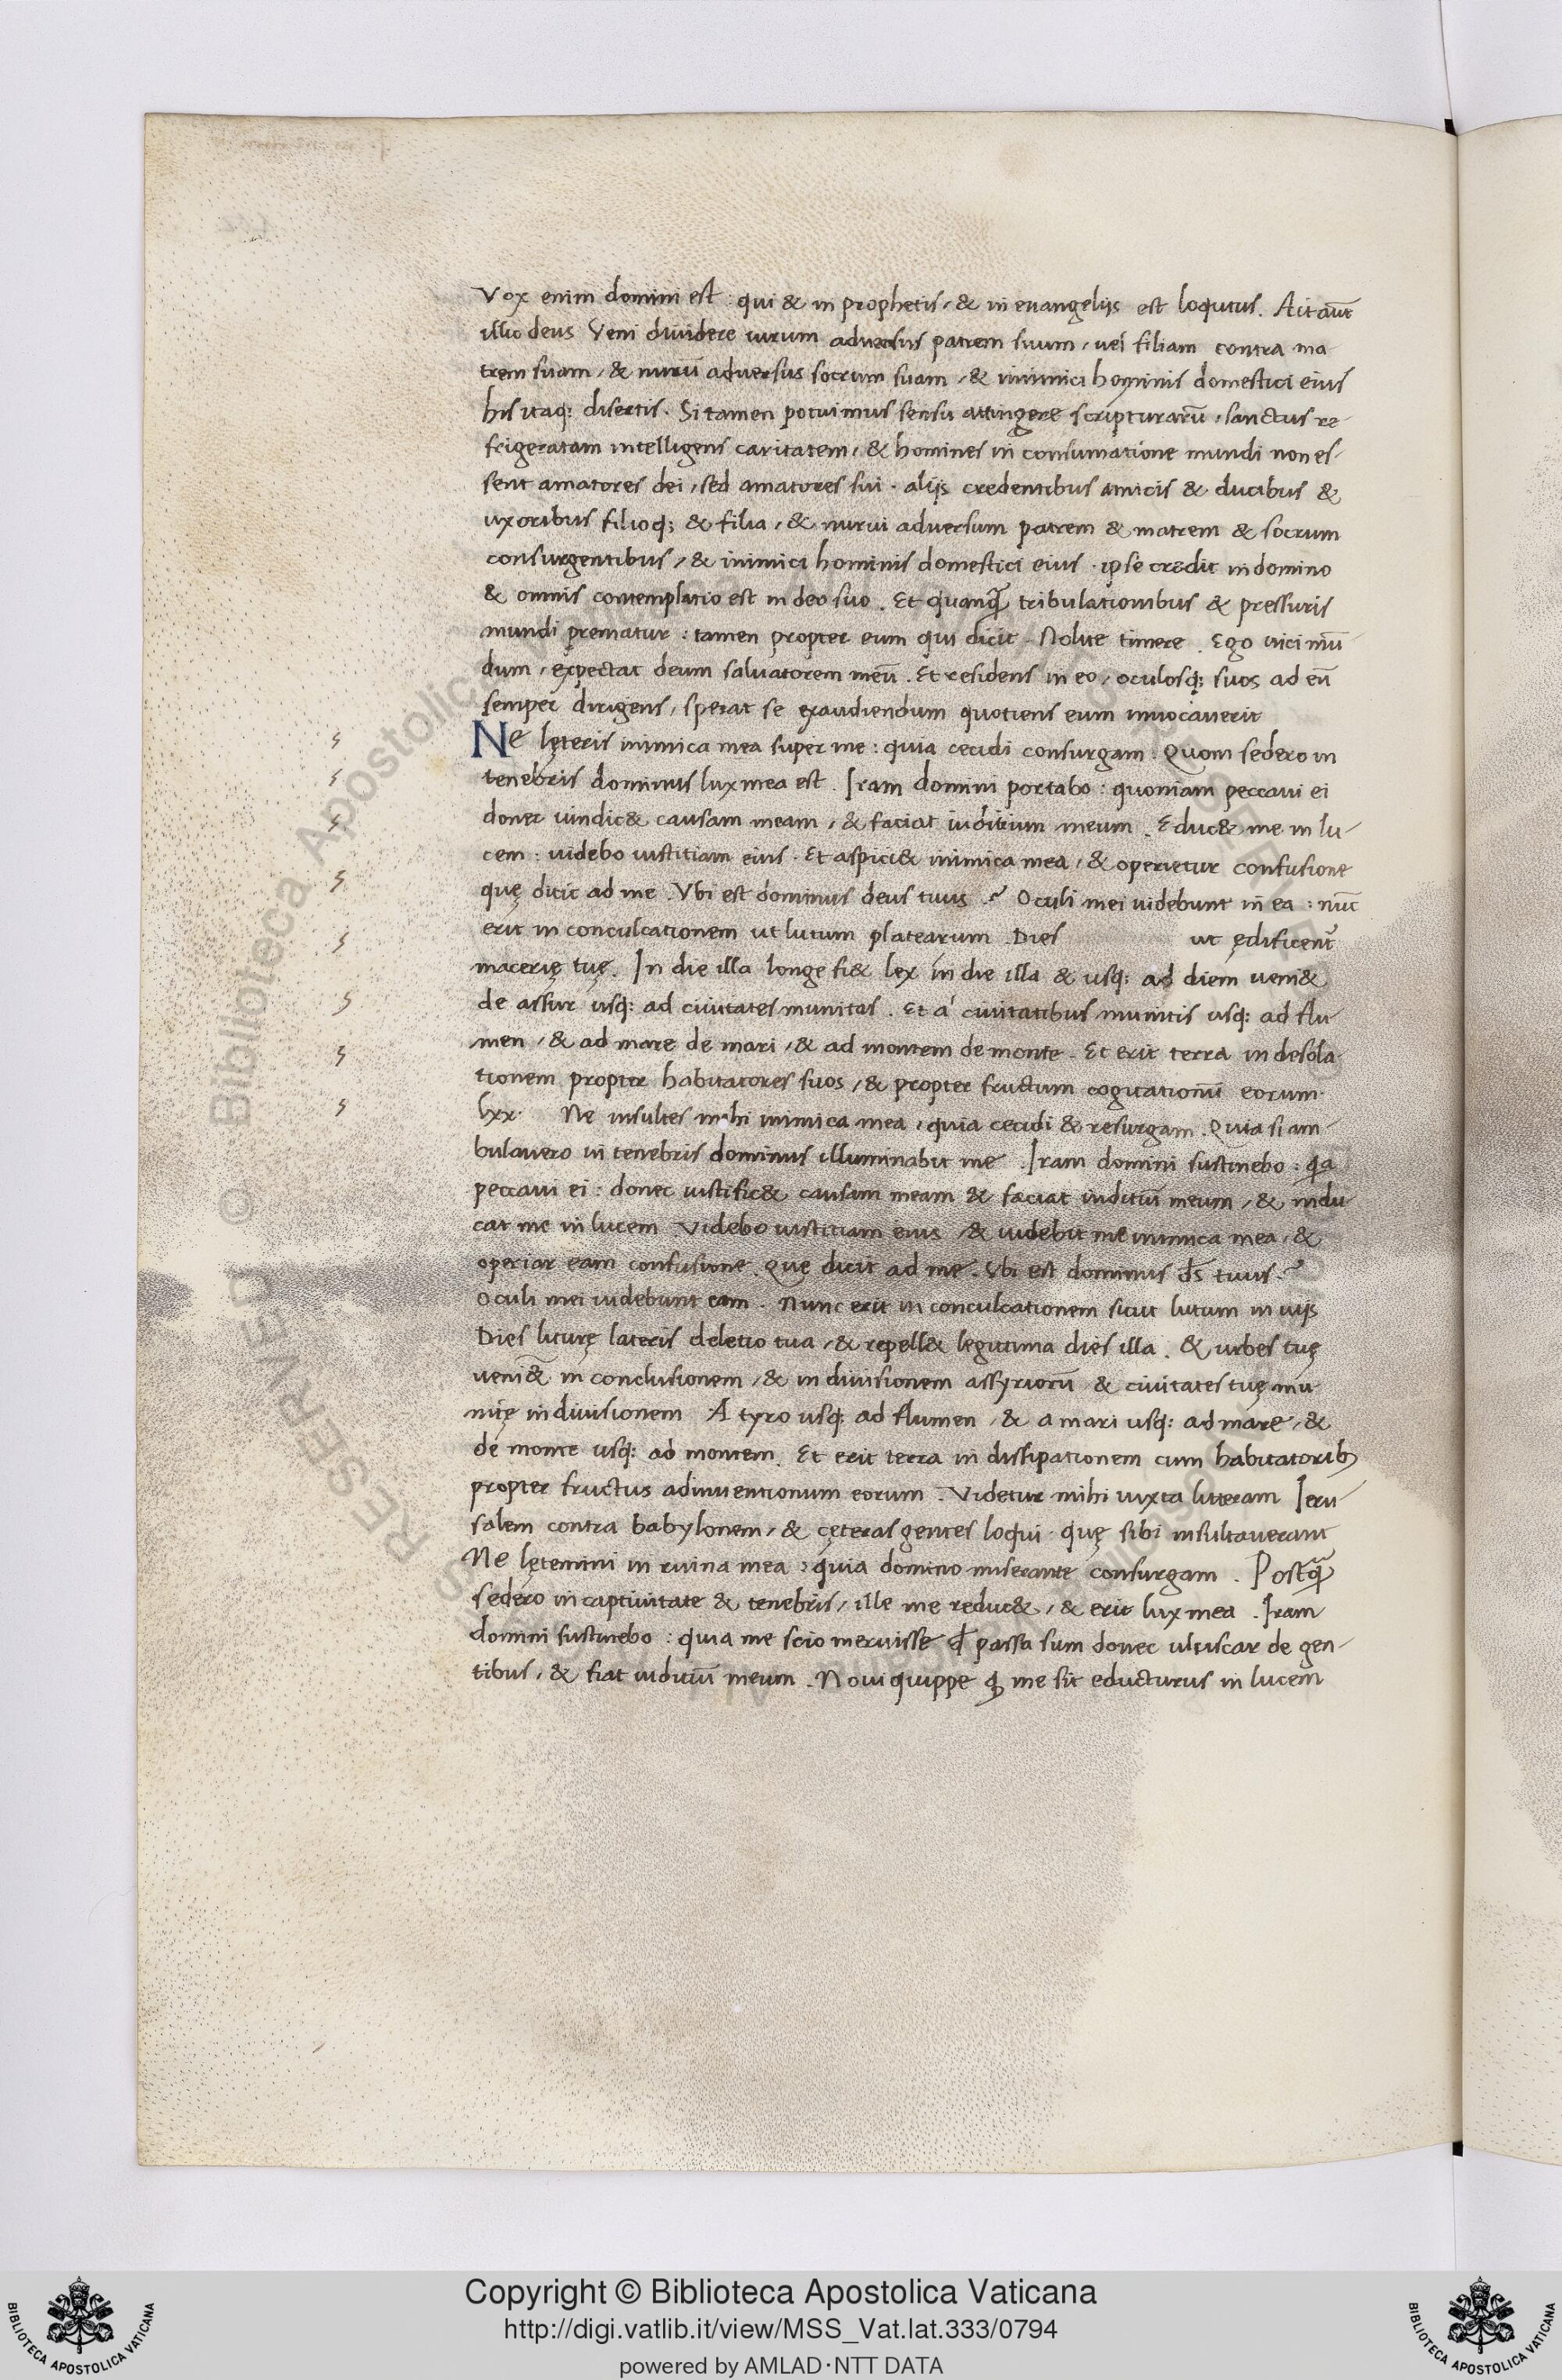 Vox enim domini est : qui & in prophetis, & in euangelijs est loqutus. Ait aūt
illic deus Veni diuidere uirum aduersus patrem suum, uel filiam contra ma
trem suam, & nurū aduersus socrum suam, & inimici hominis domestici eius
his itaq; disertis. Si tamen potuimus sensu attingere scripturarū, sanctus re-
frigeratam intelligens caritatem, & homines in consumatione mundi non es-
sent amatores dei, sed amatores sui. alijs credentibus amicis & ducibus &
uxoribus filioq; & filia, & nurui aduersum patrem & matrem & socrum
consurgentibus, & inimici hominis domestici eius. ipse credit in domino
& omnis contemplatio est in deo suo. Et quanq̃ tribulationibus & pressuris
mundi prematur : tamen propter eum qui dicit. Nolite timere. Ego uici mū
dum, expectat deum saluatorem meū. Et residens in eo, oculosq; suos ad eū
semper dirigens, sperat se exaudiendum quotiens eum inuocauerit
Ne lęteris inimica mea super me : quia cecidi consurgam. Quom sedero in
tenebris dominus lux mea est. Iram domini portabo : quoniam peccaui ei
donec uindic& causam meam, & faciat iuditium meum. Educ& me in lu-
cem : uidebo iustitiam eius. Et aspici& inimica mea, & operietur confusione
quę dicit ad me. Vbi est dominus deus tuus ? Oculi mei uidebunt in ea : nūc
erit in conculcationem ut lutum platearum. Dies ut ędificent᷑
macerię tuę. In die illa longe fi& lex in die illa & usq; ad diem ueni&
de assur usq; ad ciuitates munitas. Et á ciuitatibus munitis usq; ad flu
men, & ad mare de mari, & ad montem de monte. Et erit terra in desola
tionem propter habitatores suos, & propter fructum cogitationū eorum.
lxx. Ne insultes mihi inimica mea, quia cecidi & resurgam. Quia si am-
bulauero in tenebris dominus illuminabit me. Iram domini sustinebo : qa
peccaui ei : donec iustific& causam meam & faciat iuditiū meum, & indu
cat me in lucem Videbo iustitiam eius, & uidebit me inimica mea, &
operiar eam confusione. Quę dicit ad me. Vbi est dominus ds̄ tuus ?
Oculi mei uidebunt eam. Nunc erit in conculcationem sicut lutum in uijs
Dies liturę lateris deletio tua, & repell& legitima dies illa. & urbes tuę
ueni&̄ in conclusionem, & in diuisionem assyriorū & ciuitates tuę mu
nitę in diuisionem A tyro usq; ad flumen, & a mari usq; ad mare, &
de monte usq; ad montem. Et erit terra in dissipationem cum habitatorib;
propter fructus adinuentionum eorum. Videtur mihi iuxta litteram Ieru-
salem contra babylonem, & cęteras gentes loqui. quę sibi insultauerant
Ne lętemini in ruina mea : quia domino miserante consurgam. Postq̃
sedero in captiuitate & tenebris, ille me reduc&, & erit lux mea. Iram
domini sustinebo : quia me scio meruisse qđ passa sum donec ulciscar de gen-
tibus, & fiat iuditiū meum. Noui quippe qđ me sit educturus in lucem
© Biblioteca Apostolica Vaticana
RESERVED
Copyright © Biblioteca Apostolica Vaticana
http://digi.vatlib.it/view/MSS_Vat.lat.333/0794
powered by AMLAD·NTT DATA
BIBLIOTECA APOSTOLICA VATICANA
BIBLIOTECA APOSTOLICA VATICANA